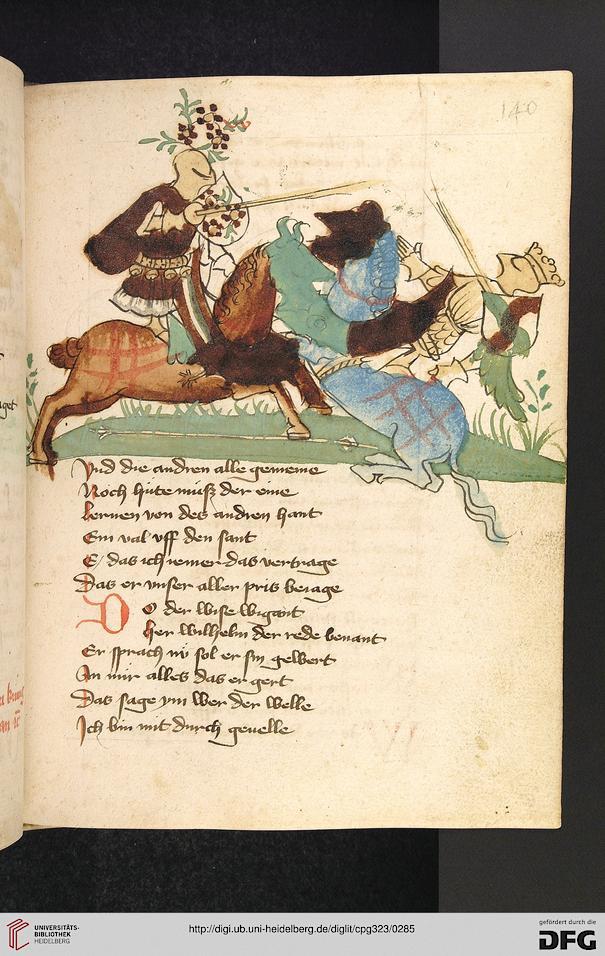 140
Vnd die andren alle gemeine
Noch hüte müsz der eine
Lernen von des andren hant
Ein val vff den sant
E das ich iemer das vertrage
Das er vnser aller pris beiage
Do der wise wigant
her wilhelm der rede benant
Er sprach nv sol er sin gewert
An mir alles das er gert
Das sage ym wer der welle
Ich bin mit durch geuelle
aget
UNIVERSITÄTS-
BIBLIOTHEK
HEIDELBERG
http://digi.ub.uni-heidelberg.de/diglit/cpg323/0285
gefördert durch die
DFG